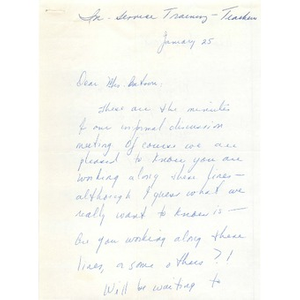 In-Service Training - Teachers
January 25
Dear Mrs.
These are the minutes
of our informal discussion
meeting. Of course we are
pleased to know you are
working along these lines—
although I guess what we
really want to know is—
Are you working along these
lines, or some others?!
Will be waiting to